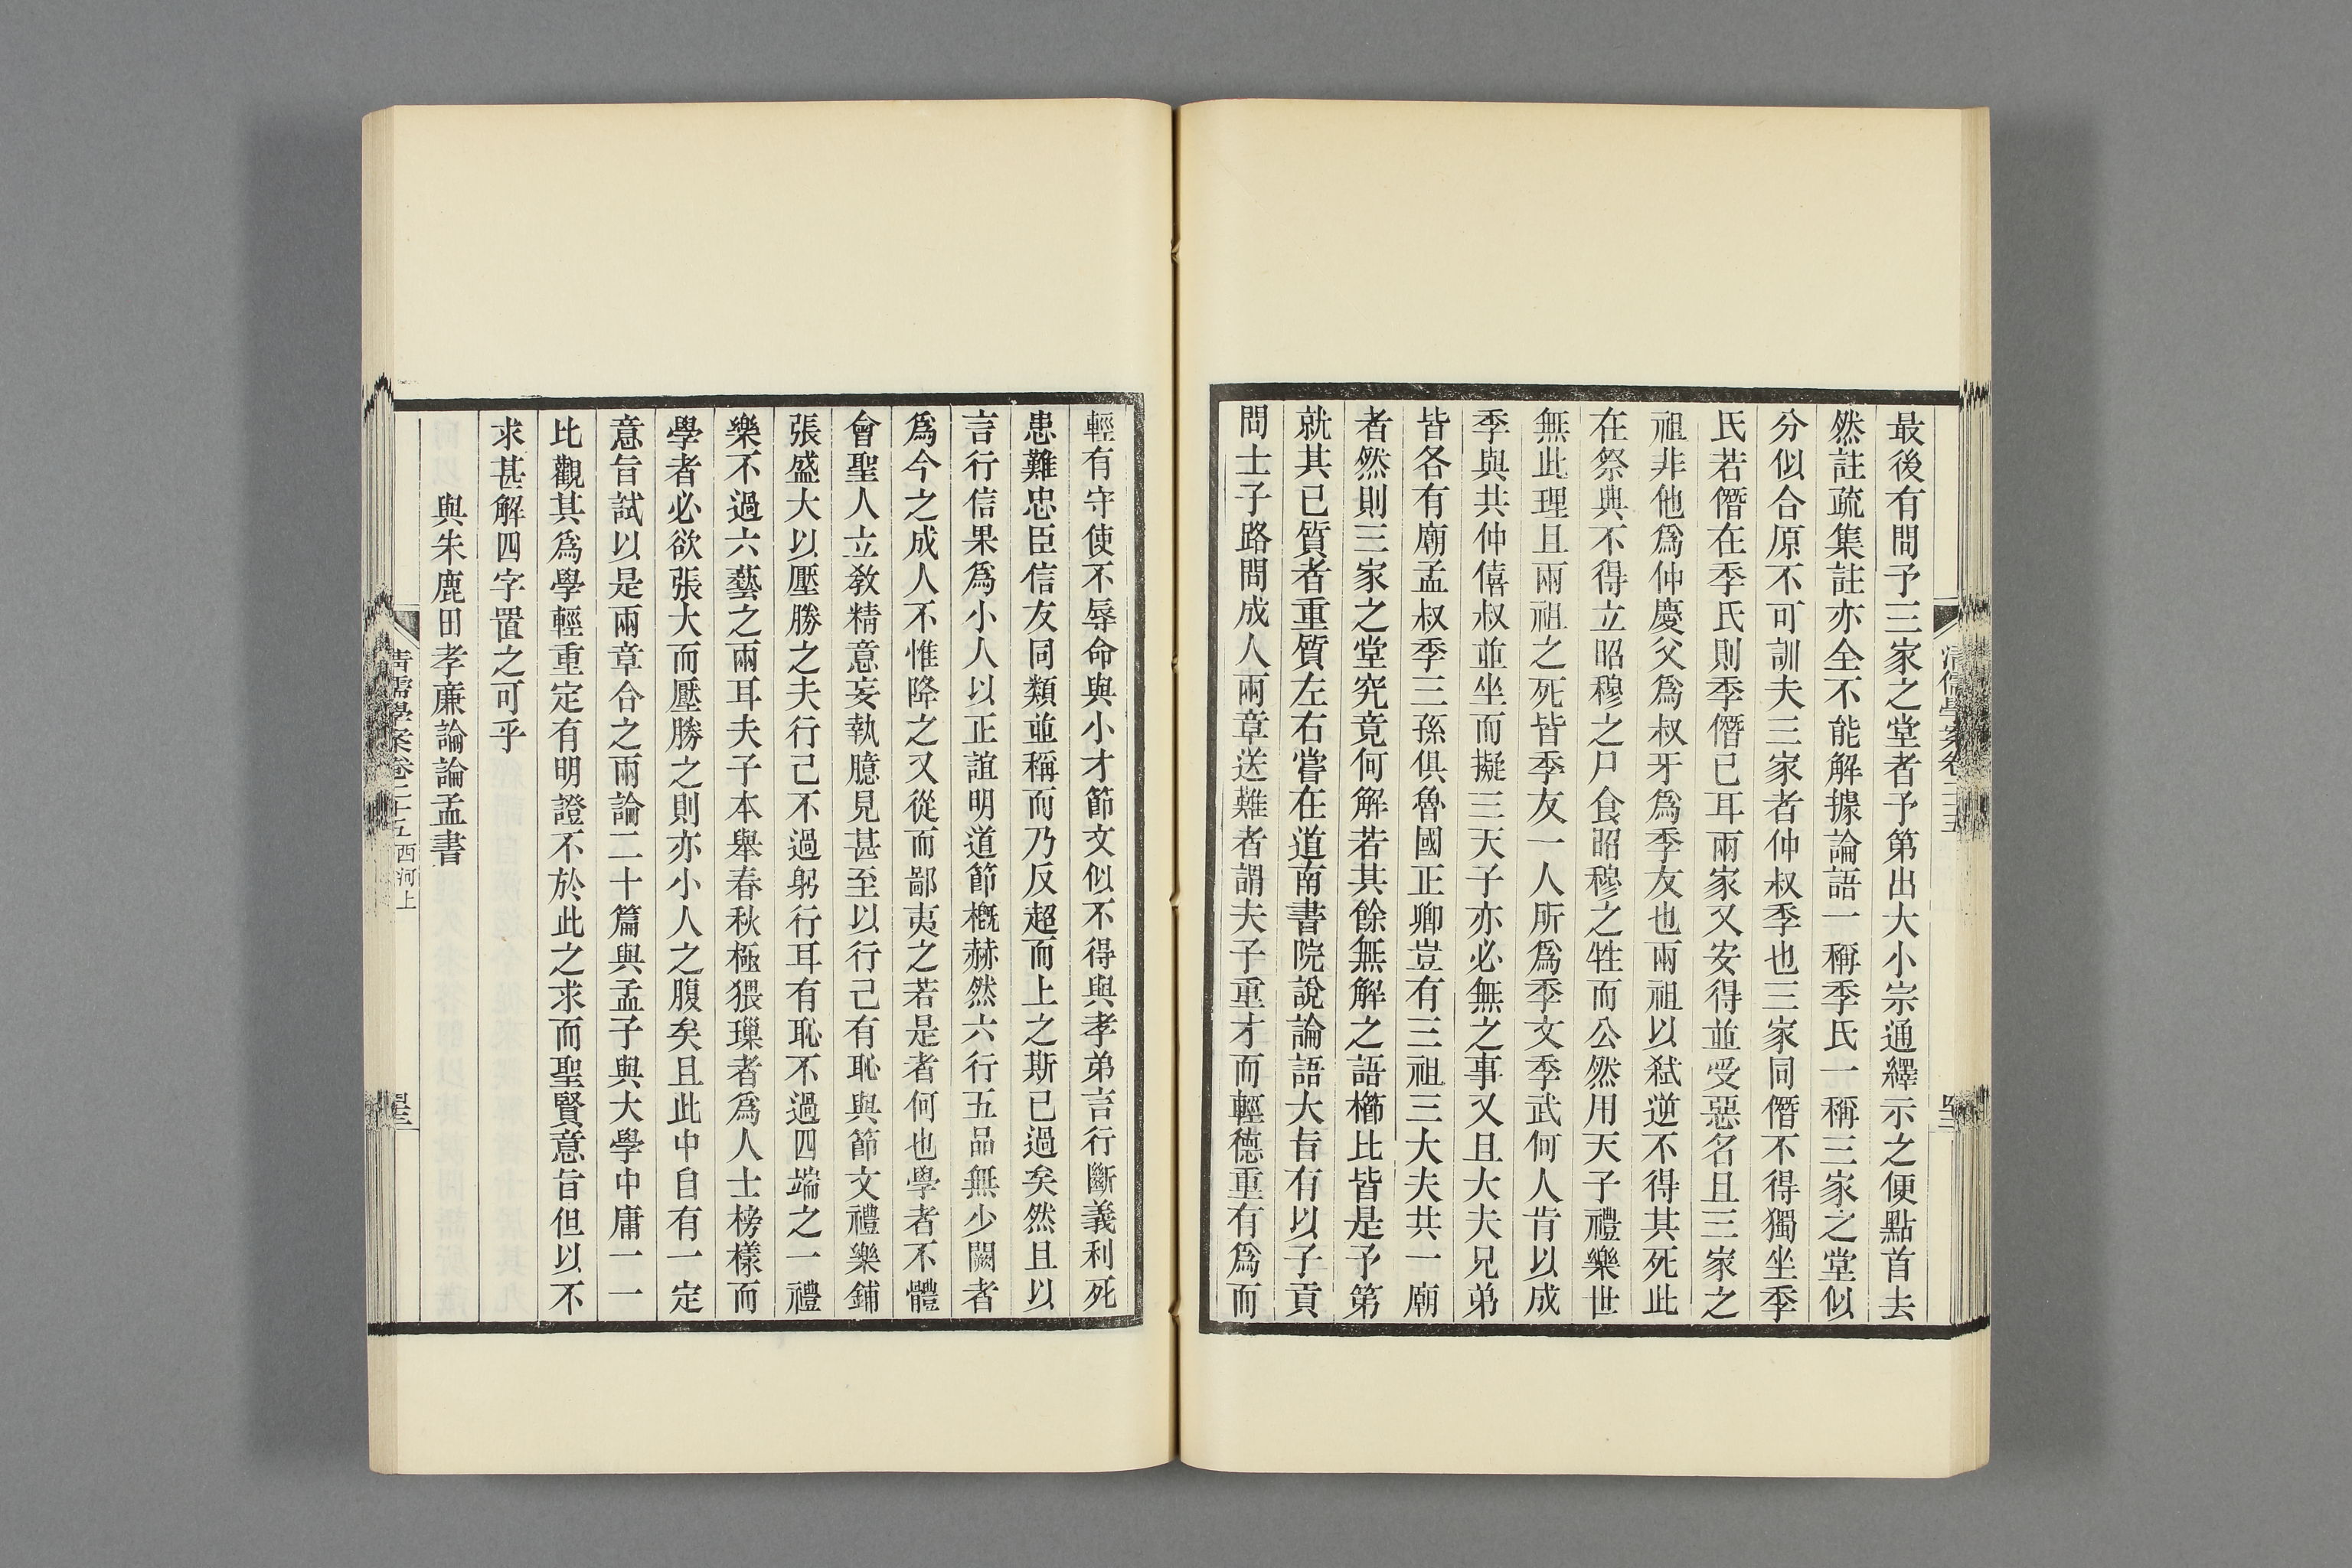 最後有問予三家之堂者予第出大小宗通繹示之便點首去
然註疏集註亦全不能解據論語一稱季氏一稱三家之堂似
分似合原不可訓夫三家者仲叔季也三家同僭不得獨坐季
氏若僭在季氏則季僭已耳兩家又安得並受惡名且三家之
祖非他為仲慶父為叔牙為季友也兩祖以弒逆不得其死此
在祭典不得立昭穆之尸食昭穆之牲而公然用天子禮樂世
無此理且兩祖之死皆季友一人所為季文季武何人肯以成
季與共仲僖叔並坐而擬三天子亦必無之事又且大夫兄弟
皆各有廟孟叔季三孫俱魯國正卿豈有三祖三大夫共一廟
者然則三家之堂究竟何解若其餘無解之語櫛比皆是予第
就其已質者重質左右嘗在道南書院說論語大旨有以子貢
問士子路問成人兩章送難者謂夫子重才而輕德重有為而
輕有守使不辱命與小才節文似不得與孝弟言行斷義利死
患難忠臣信友同類並稱而乃反超而上之斯已過矣然且以
言行信果為小人以正誼明道節概赫然六行五品無少闕者
為今之成人不惟降之又從而鄙夷之若是者何也學者不體
會聖人立教精意妄執臆見甚至以行己有恥與節文禮樂鋪
張盛大以壓勝之夫行己不過躬行耳有恥不過四端之一禮
樂不過六藝之兩耳夫子本舉春秋極猥璅者為人士榜樣而
學者必欲張大而壓勝之則亦小人之腹矣且此中自有一定
意旨試以是兩章合之兩論二十篇與孟子與大學中庸一一
比觀其為學輕重定有明證不於此之求而聖賢意旨但以不
求甚解四字置之可乎
與朱鹿田孝廉論論孟書
清儒學案卷二十五 西河上